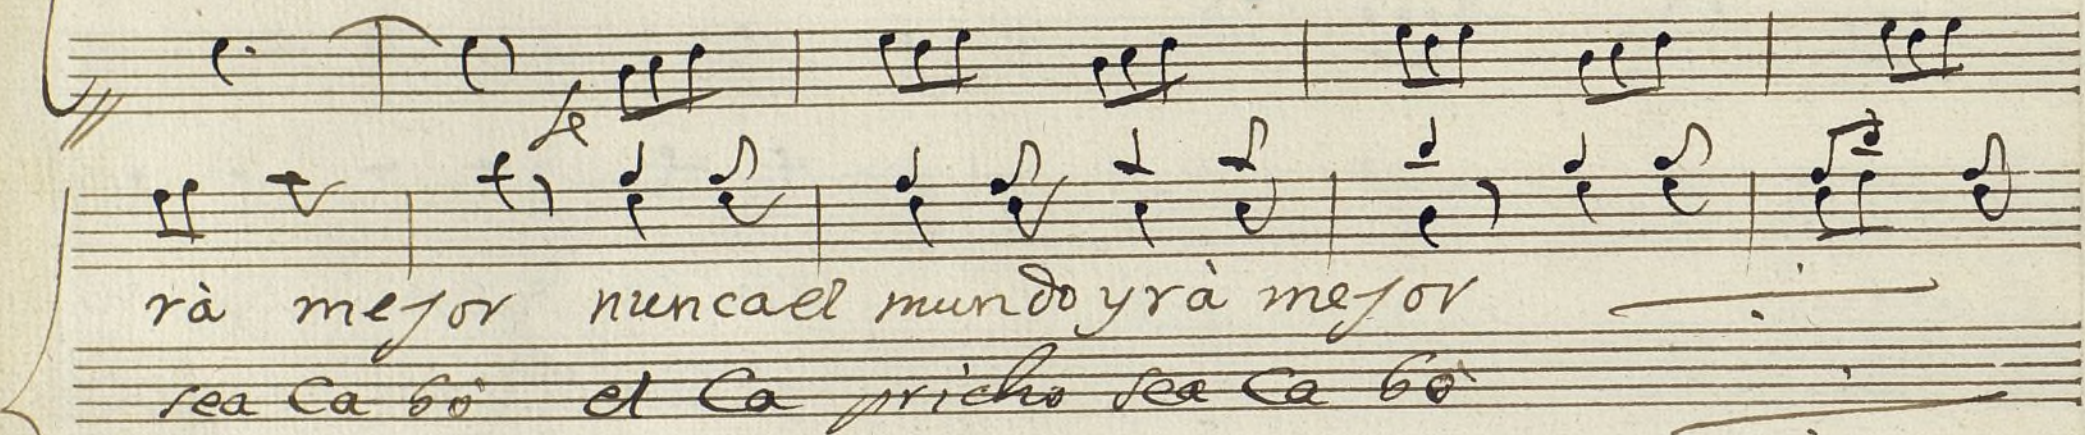 fe
rà mejor nuncael mundo yrà mejor
sea Ca bò el Ca pricho sea Ca bò